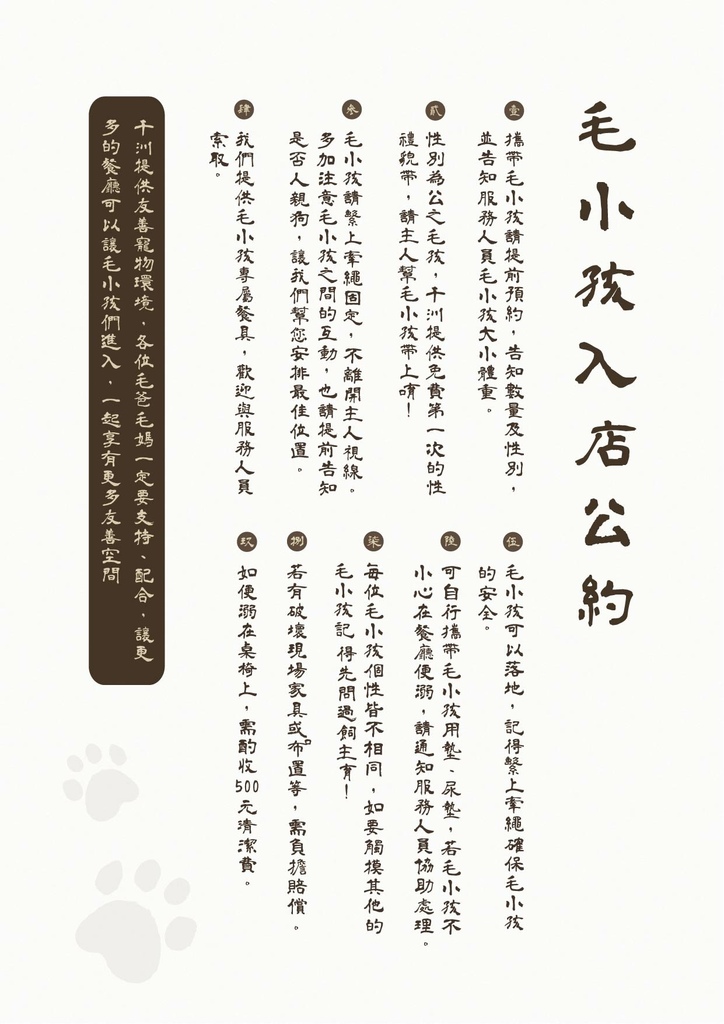 毛小孩入店公約
壹
攜帶毛小孩請提前預約，告知數量及性別，
並告知服務人員毛小孩大小體重。
貳
性別為公之毛孩，千洲提供免費第一次的性
禮貌帶，請主人幫毛小孩帶上唷！
參
毛小孩請繫上牽繩固定，不離開主人視線。
多加注意毛小孩之間的互動，也請提前告知
是否人親狗，讓我們幫您安排最佳位置。
肆
我們提供毛小孩專屬餐具，歡迎與服務人員
索取。
伍
毛小孩可以落地，記得繫上牽繩確保毛小孩
的安全。
陸
可自行攜帶毛小孩用墊、尿墊，若毛小孩不
小心在餐廳便溺，請通知服務人員協助處理。
柒
每位毛小孩個性皆不相同，如要觸摸其他的
毛小孩記得先問過飼主育！
捌
若有破壞現場家具或布置等，需負擔賠償。
玖
如便溺在桌椅上，需酌收500元清潔費。
千洲提供友善寵物環境，各位毛爸毛媽一定要支持、配合，讓更
多的餐廳可以讓毛小孩們進入，一起享有更多友善空間